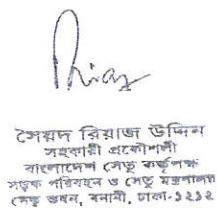 সৈয়দ রিয়াজ উদ্দিন
সহকারী প্রকৌশলী
বাংলাদেশ সেতু কর্তৃপক্ষ
সড়ক পরিবহন ও সেতু মন্ত্রণালয়
সেতু ভবন, বনানী, ঢাকা-১২১২